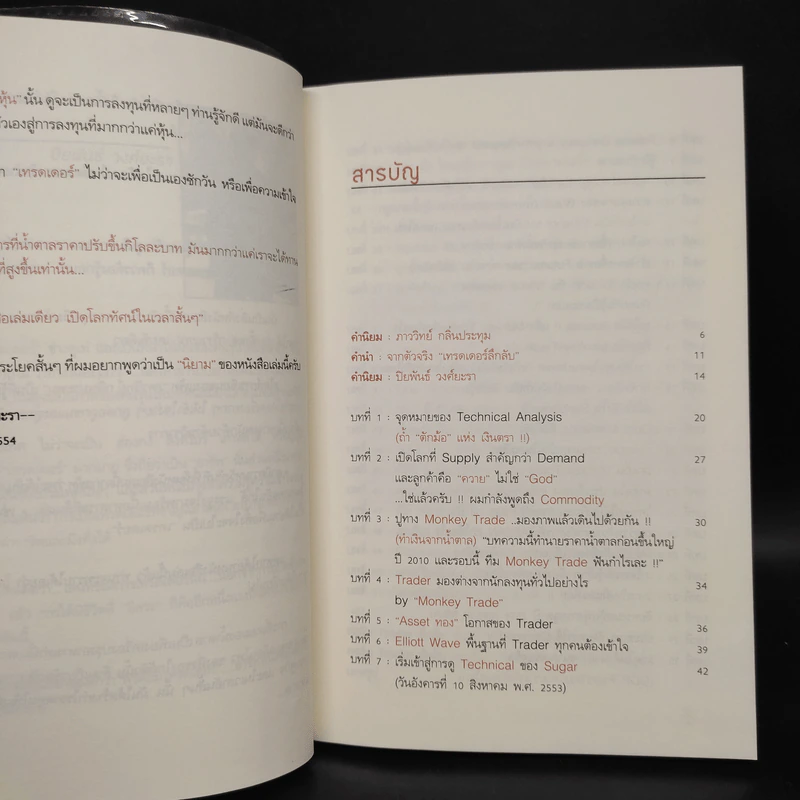 หุ้น" นั้น ดูจะเป็นการลงทุนที่หลายๆ ท่านรู้จักดี แต่มันจะดีกว่า
ตัวเองสู่การลงทุนที่มากกว่าแค่หุ้น...
"เทรดเดอร์" ไม่ว่าจะเพื่อเป็นเองซักวัน หรือเพื่อความเข้าใจ
การที่น้ำตาลราคาปรับขึ้นกิโลละบาท มันมากกว่าแค่เราจะได้ทาน
ที่สูงขึ้นเท่านั้น...
เล่มเดียว เปิดโลกทัศน์ในเวลาสั้นๆ"
ประโยคสั้นๆ ที่ผมอยากพูดว่าเป็น "นิยาม" ของหนังสือเล่มนี้ครับ
ะรา--
554
สารบัญ
คำนิยม : ภาววิทย์ กลิ่นประทุม 6
คำนำ : จากตัวจริง "เทรดเดอร์ลึกลับ" 11
คำนิยม : ปิยพันธ์ วงศ์ยะรา 14
บทที่ 1 : จุดหมายของ Technical Analysis 20
(ถ้ำ "ตักม้อ" แห่ง เงินตรา !!)
บทที่ 2 : เปิดโลกที่ Supply สำคัญกว่า Demand 27
และลูกค้าคือ "ควาย" ไม่ใช่ "God"
...ใช่แล้วครับ !! ผมกำลังพูดถึง Commodity
บทที่ 3 : ปูทาง Monkey Trade ..มองภาพแล้วเดินไปด้วยกัน !! 30
(ทำเงินจากน้ำตาล) "บทความนี้ทำนายราคาน้ำตาลก่อนขึ้นใหญ่
ปี 2010 และรอบนี้ ทีม Monkey Trade ฟันกำไรเละ !!"
บทที่ 4 : Trader มองต่างจากนักลงทุนทั่วไปอย่างไร 34
by "Monkey Trade"
บทที่ 5 : "Asset ทอง" โอกาสของ Trader 36
บทที่ 6 : Elliott Wave พื้นฐานที่ Trader ทุกคนต้องเข้าใจ 39
บทที่ 7 : เริ่มเข้าสู่การดู Technical ของ Sugar 42
(วันอังคารที่ 10 สิงหาคม พ.ศ. 2553)